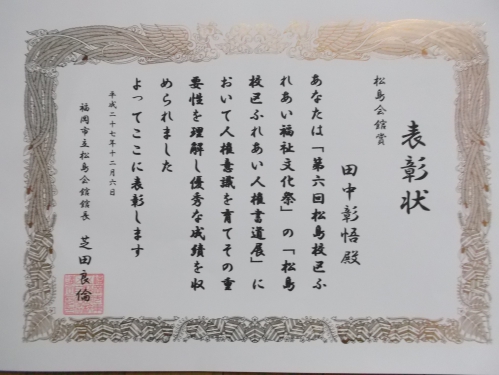 表彰状
松島会館賞
田中彰悟殿
あなたは「第六回松島校区ふ
れあい福祉文化祭」の「松島
校区ふれあい人権書道展」に
おいて人権意識を育てその重
要性を理解し優秀な成績を収
められました
よってここに表彰します
平成二十七年十二月六日
福岡市立松島会館館長
芝田良倫